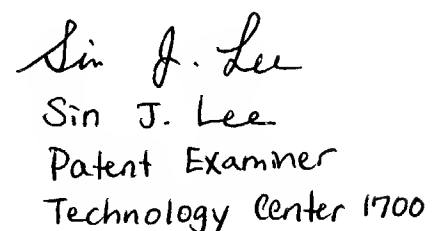 Sin J. Lee
Sin J. Lee.
Patent Examiner
Technology Center 1700